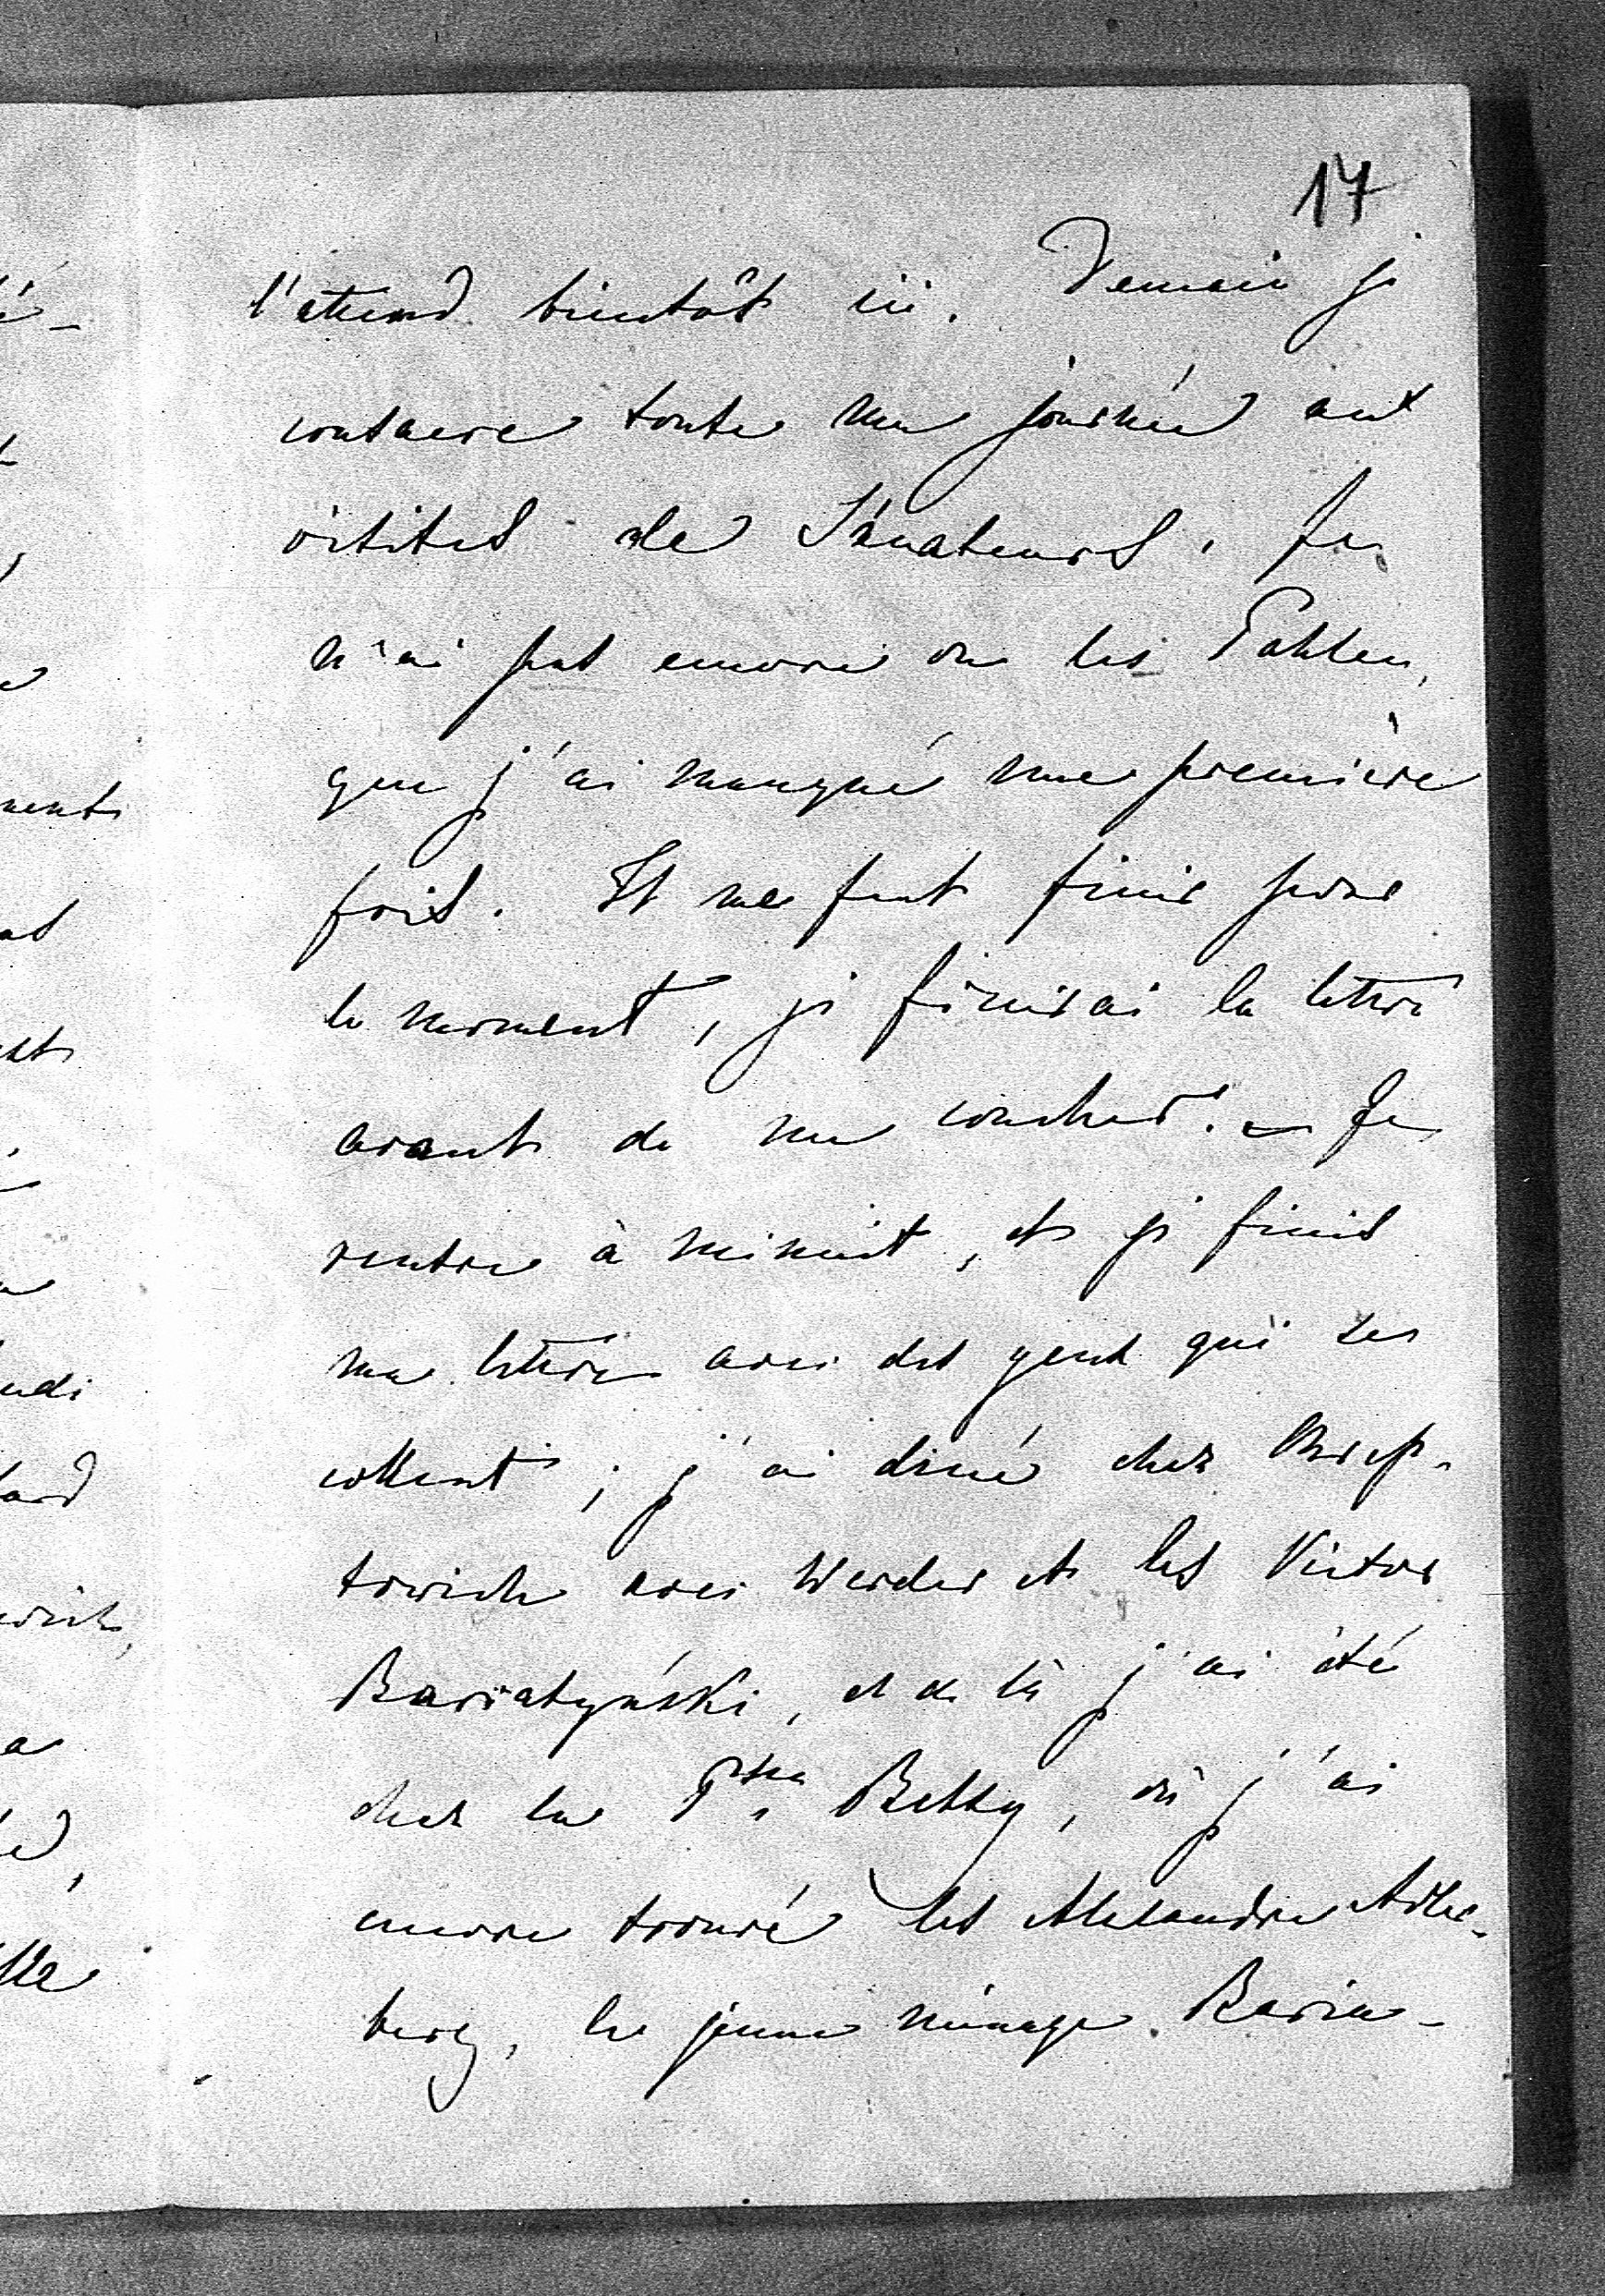 17
l'attend bientôt ici. Demain je
consacre toute ma journée aux
visites de Sénateurs. Je
n'ai pas encore vu les Pahlen,
que j'ai manqué une première
fois. Il me faut finir pour
le moment, je finirai la lettre
avant de me coucher. — Je
rentre à minuit, et je finis
ma lettre avec des yeux qui se
collent; j'ai diné chez
towich avec Werder et les Victor
Bariatynski, et de là j'ai été
chez la Psse Betsy, où j'ai
encore trouvé les Alexandre Adler-
berg, le jeune ménage Baria-